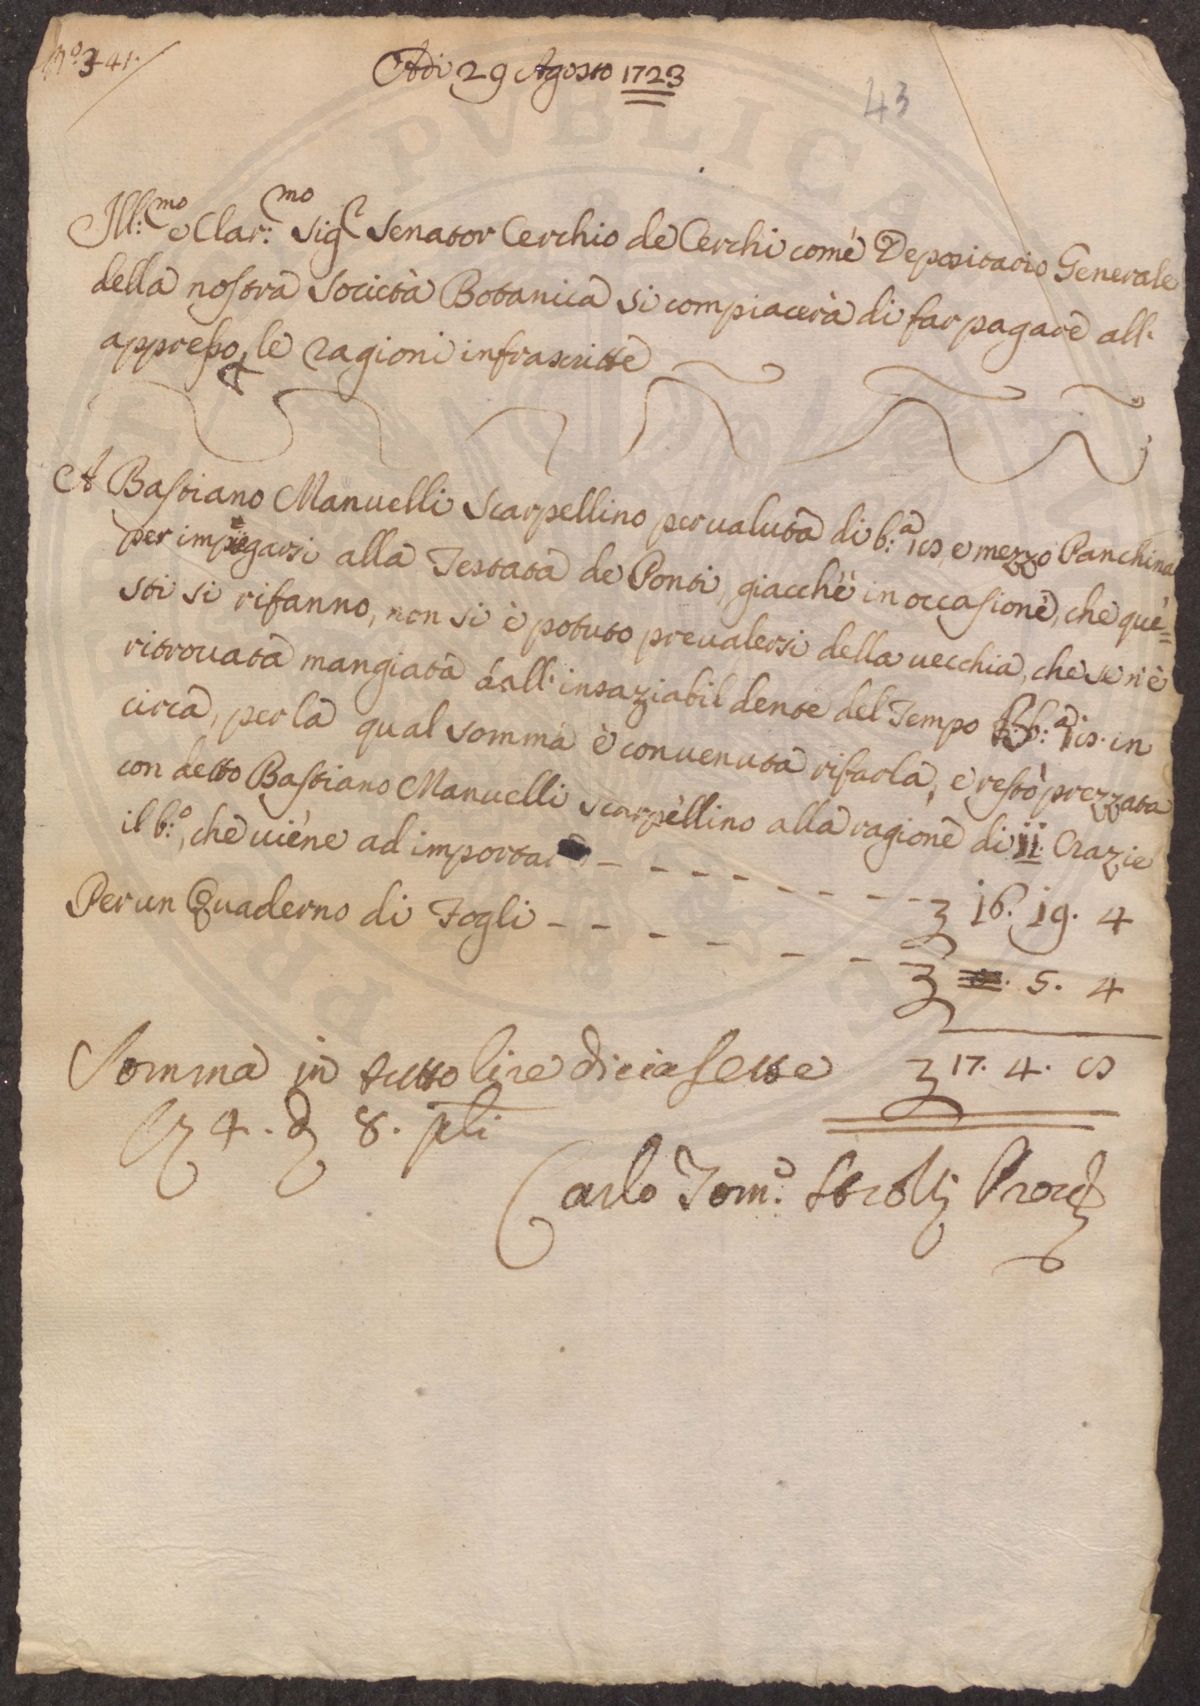 N.º 341.
Adi 29 Agosto 1723
43
Ill:mo e Clar:mo Sig.r Senator Cerchio de Cerchi come Depositario Generale
della nostra Società Botanica si compiacerà di far pagare all'
appresso le ragioni infrascritte
A Bastiano Manuelli Scarpellino per valuta di b:a e mezzo Panchina
per impiegarsi alla Testata de Ponti, giacchè in occasione, che què=
sti si rifanno, non si è potuto prevalersi della vecchia, che se n'è
ritrovata mangiata dall'insaziabil dente del Tempo b:a in
circa, per la qual somma è convenuta rifarla, e restò prezzata
con detto Bastiano Manuelli Scarpellino alla ragione di 11. Crazie
il b:o, che viène ad importar 16. 19. 4
Per un Quaderno di Fogli 5. 4
Somma in tutto lire diciasette 17. 4. 8
4. 8. pli
Carlo Tom.o Strozzi
PVBLICA